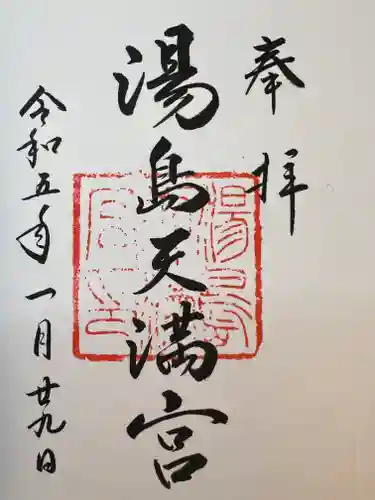 奉拝
湯島天満宮
令和五年一月廿九日